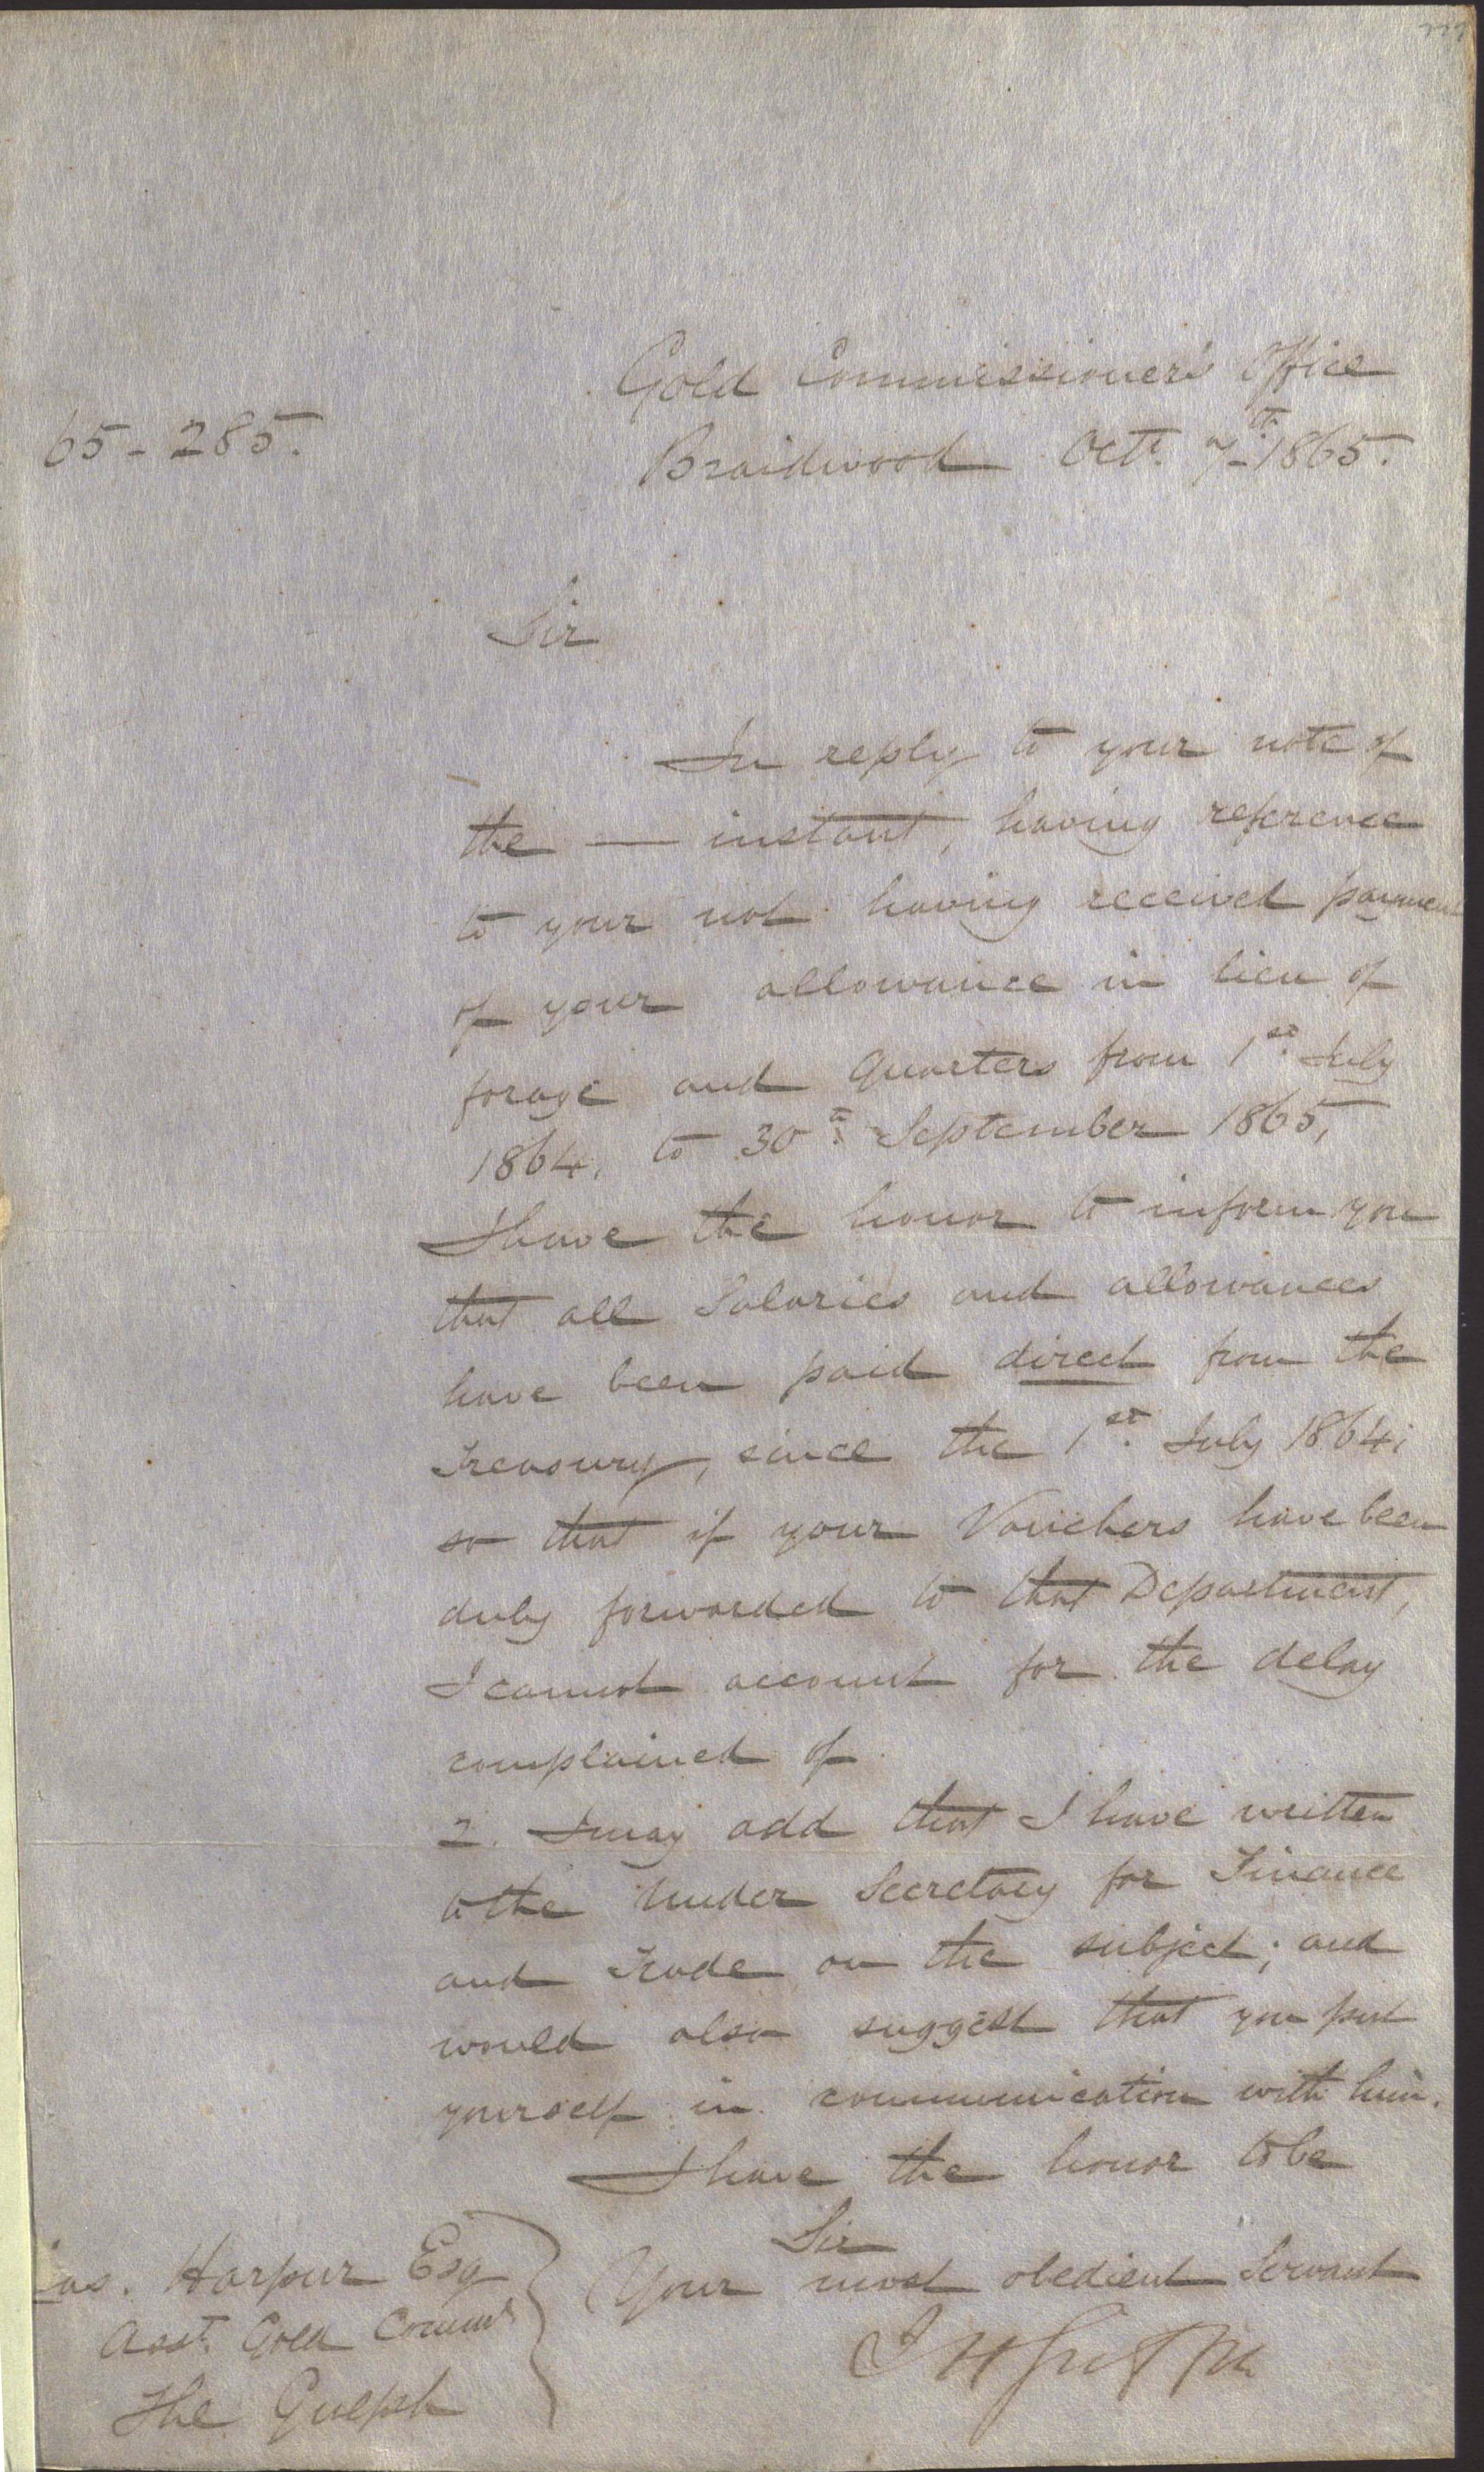 65-285.
Gold Commissioner's Office
Braidwood Octr. 7th 1865.
Sir
In reply to your note of
the — instant, having reference
to your not having received payment
of your allowance in lieu of
forage and Quarters from 1st July
1864, to 30th September 1865,
I have the honor to inform you
that all Salaries and allowances
have been paid direct from the
Treasury, since the 1st July 1864;
so that if your Vouchers have been
duly forwarded to that Department,
I cannot account for the delay
complained of
2. I may add that I have written
to the Under Secretary for Finance
and Trade on the subject; and
would also suggest that you put
yourself in communication with him.
I have the honor to be
Sir
Your most obedient Servant
Chas. Harpur Esq
Asst. Gold Commr
The Gulph